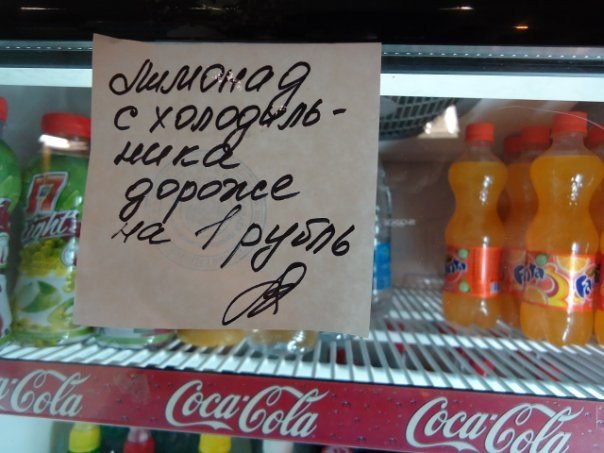 лимонад
с холодиль-
ника
дороже
на 1 рубль
Light
Fanta
Fanta
Coca-Cola
Coca-Cola
Coca-Cola